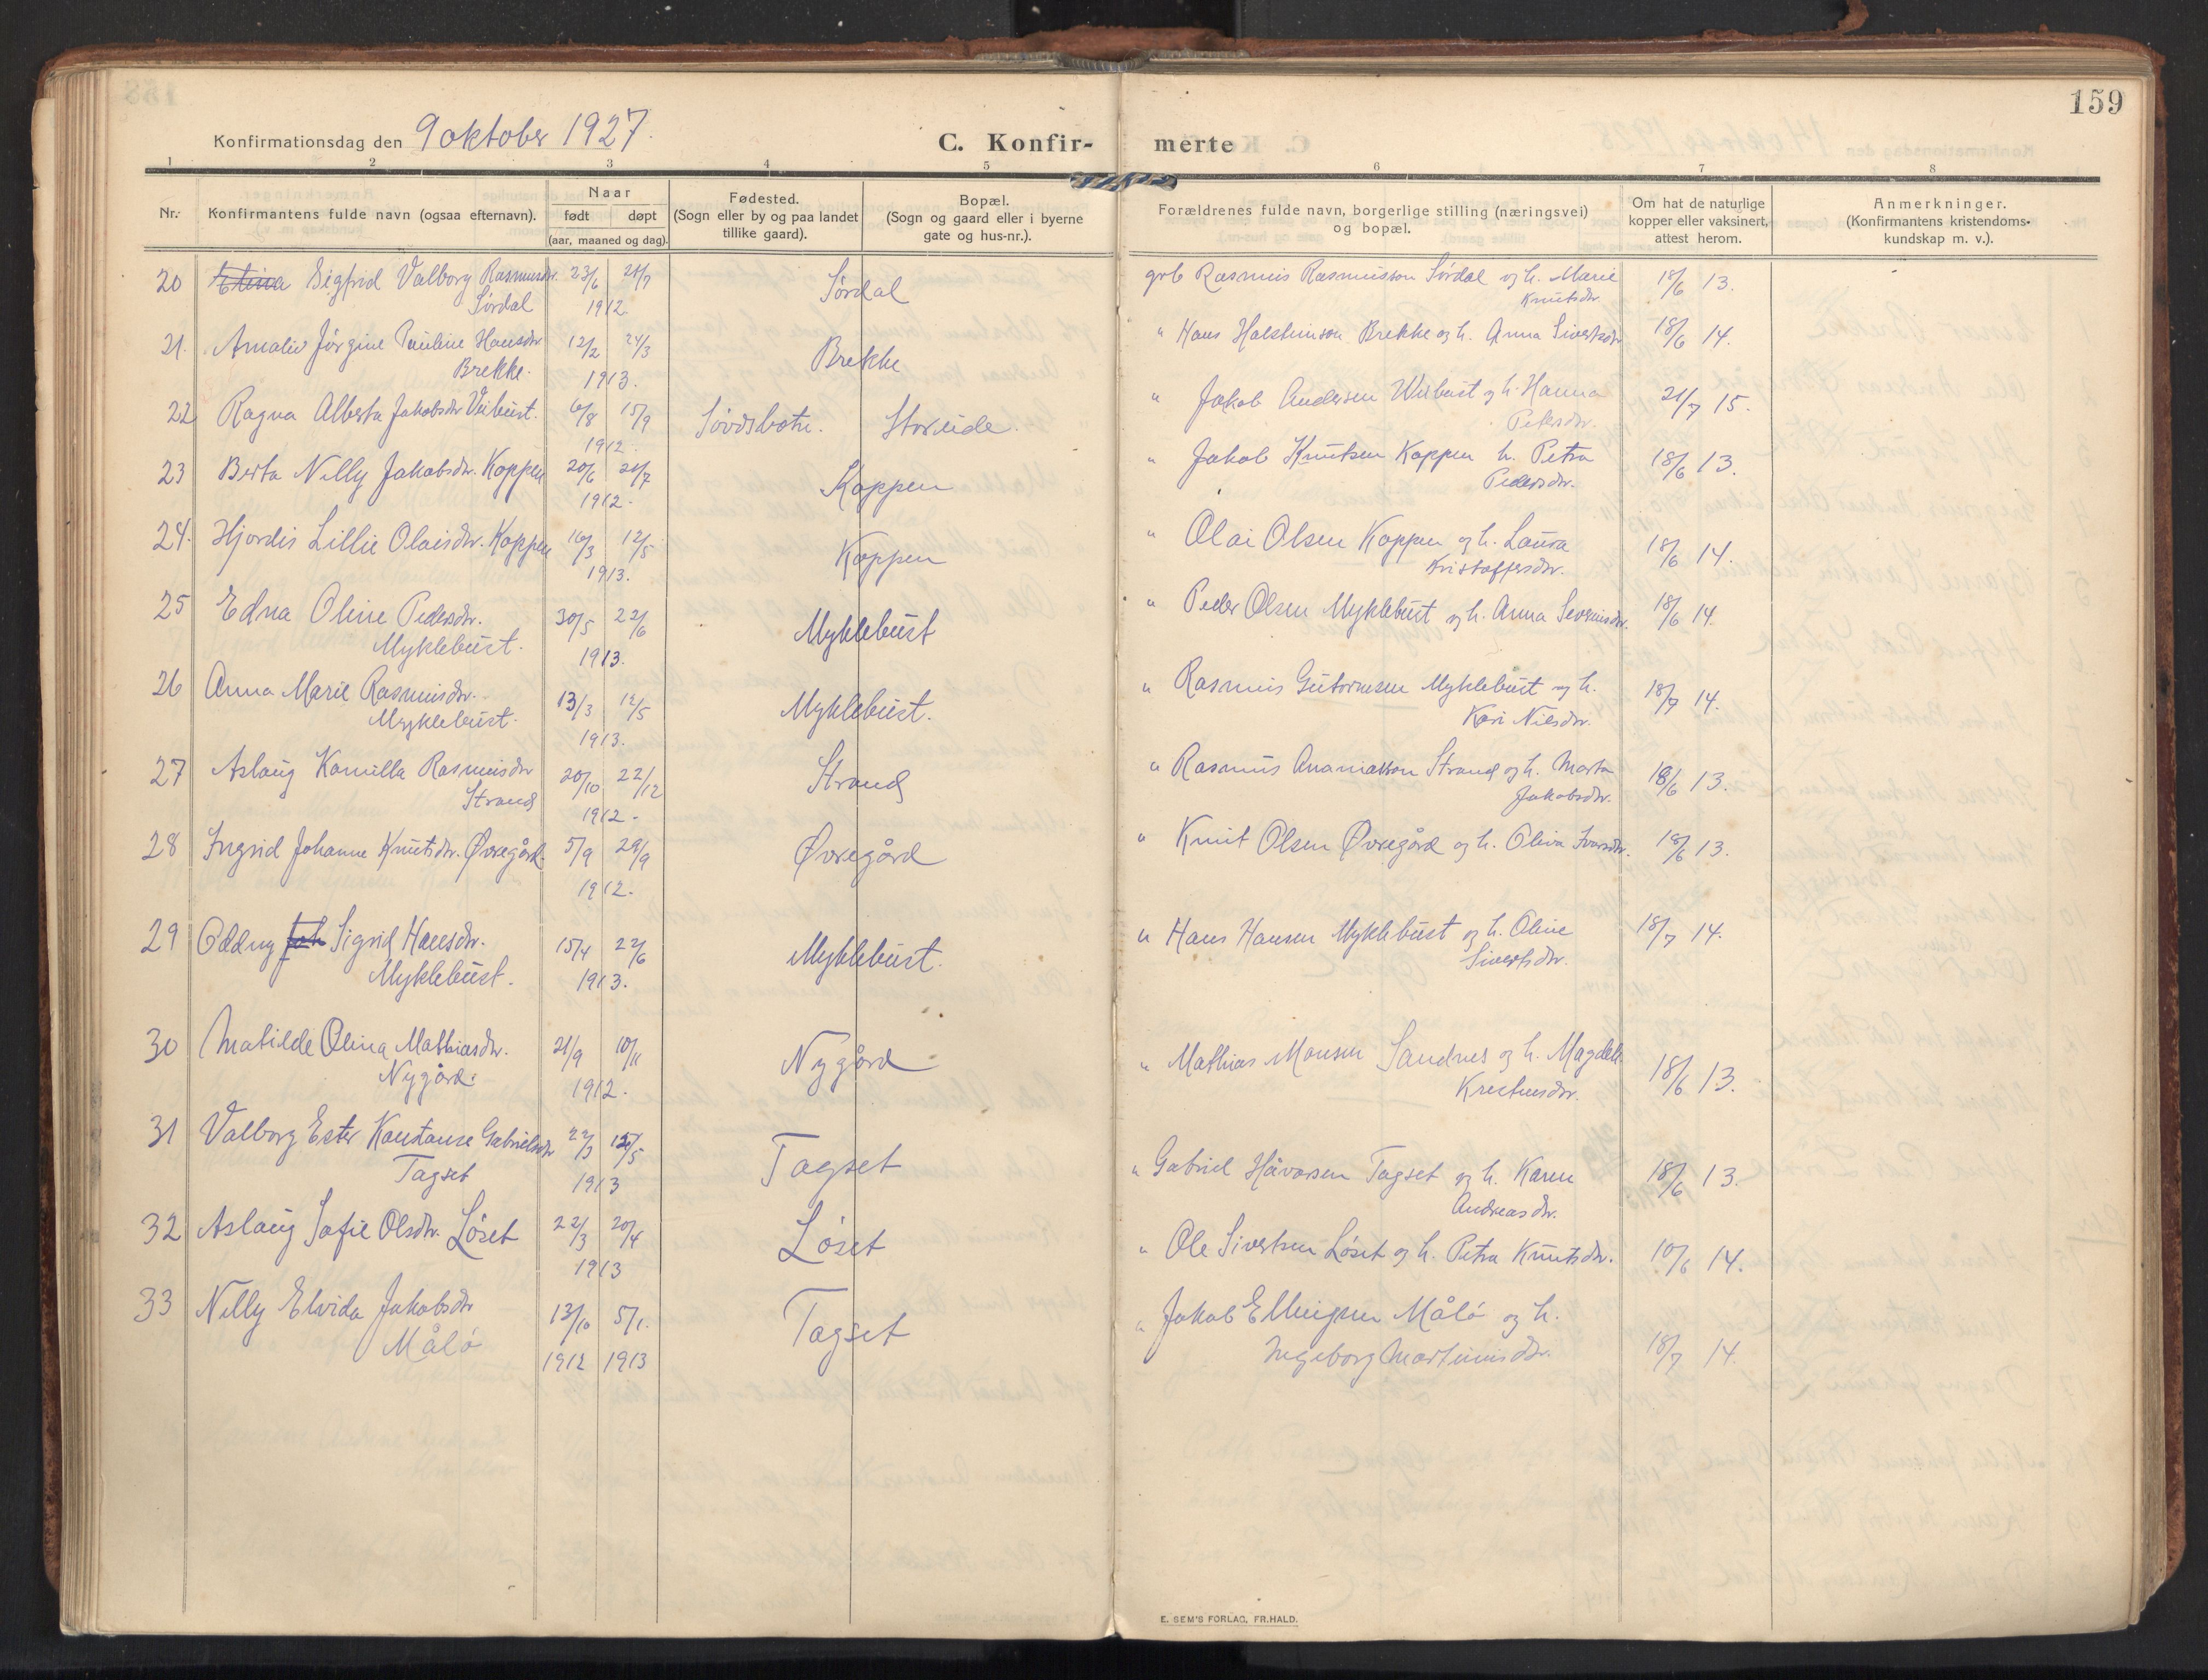 159
Konfirmationsdag den 9 oktober 1927.
C. Konfir- merte
1 2 3 4 5 6 7 8
Nr. Konfirmantens fulde navn (ogsaa efternavn). Naar født døpt (aar, maaned og dag). Fødested. (Sogn eller by og paa landet tillike gaard). Bopæl. (Sogn og gaard eller i byerne gate og hus-nr.). Forældrenes fulde navn, borgerlige stilling (næringsvei) og bopæl. Om hat de naturlige kopper eller vaksinert, attest herom. Anmerkninger. (Konfirmantens kristendoms-kundskap m. v.).
20 Sigfrid Valborg Rasmusdr. 23/6 21/7 Sørdal grb Rasmus Rasmusson Sørdal og h. Marie 18/6 13.
Sørdal 1912. Knutsdr.
21. Amalie Jørgine Pauline Hansdr 12/2 24/3 Brekke " Hans Holsteinson Brekke og h. Anna Sivertsdr 18/6 14.
Brekke. 1913.
22 Ragna Alberta Jakobsdr Veibust. 6/8 15/9 Søvdsbotn. Storeide. " Jakob Andersen Weibust og h. Hanna 21/7 15.
1912. Petersdr.
23 Berta Nilly Jakobsdr. Koppen 20/6 21/7 Koppen " Jakob Knutsen Koppen h. Petra 18/6 13.
1912. Pedersdr.
24. Hjordis Lillie Olaisdr. Koppen 16/3 12/5 Koppen " Olai Olsen Koppen og h. Laura 18/6 14.
1913. Kristoffersdr.
25 Edna Oline Pedersdr. 30/5 22/6 Myklebust " Peder Olsen Myklebust og h. Anna Severinsdr. 18/6 14.
Myklebust. 1913.
26 Anna Marie Rasmusdr. 13/3 12/5 Myklebust. " Rasmus Gutormsen Myklebust og h. 18/7 14.
Myklebust. 1913. Kari Nilsdr.
27 Aslaug Kamilla Rasmusdr 20/10 22/12 Strand " Rasmus Ananiasson Strand og h. Marta 18/6 13.
Strand 1912. Jakobsdr.
28 Ingrid Johanne Knutsdr. Øvregård. 5/9 29/9 Øvregård " Knut Olsen Øvregård og h. Oliva Ivarsdr. 18/6 13.
1912.
29 Oddny Joh Sigrid Hansdr. 15/4 22/6 Myklebust. " Hans Hansen Myklebust og h. Oline 18/7 14.
Myklebust. 1913. Sivertsdr.
30 Matilde Olina Mathiasdr. 21/9 10/11 Nygård " Mathias Monsen Sandnes og h. Magdele 18/6 13.
Nygård. 1912.
31 Valborg Ester Konstanse Gabrielsdr 22/3 Tagset " Gabriel Håvarsen Tagset og h. Karen 18/6 13.
Tagset 1913 Andreasdr.
32 Aslaug Sofie Olsdr. Løset 22/3 20/4 Løset " Ole Sivertsen Løset og h. Petra Knutsdr. 10/6 14.
1913
33 Nelly Elvida Jakobsdr 13/10 5/1. Tagset " Jakob Ellingsen Målø og h.
Målø 1912 1913 Ingeborg Martinusdr. 18/7 14.
E. SEM'S FORLAG, FR.HALD.